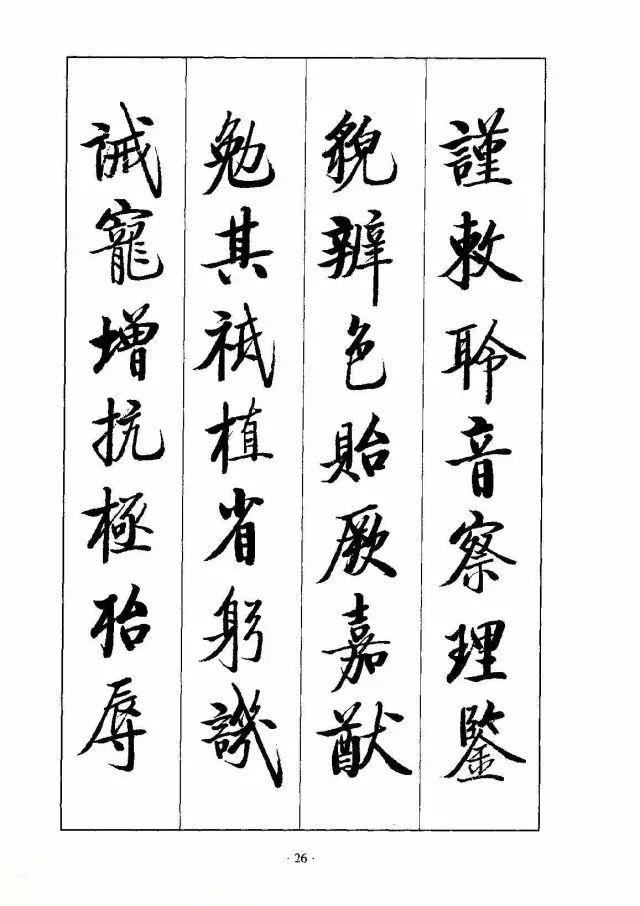 謹敕聆音察理鑒
貌辨色貽厥嘉猷
勉其祗植省躬譏
誡寵增抗極殆辱
· 26 ·